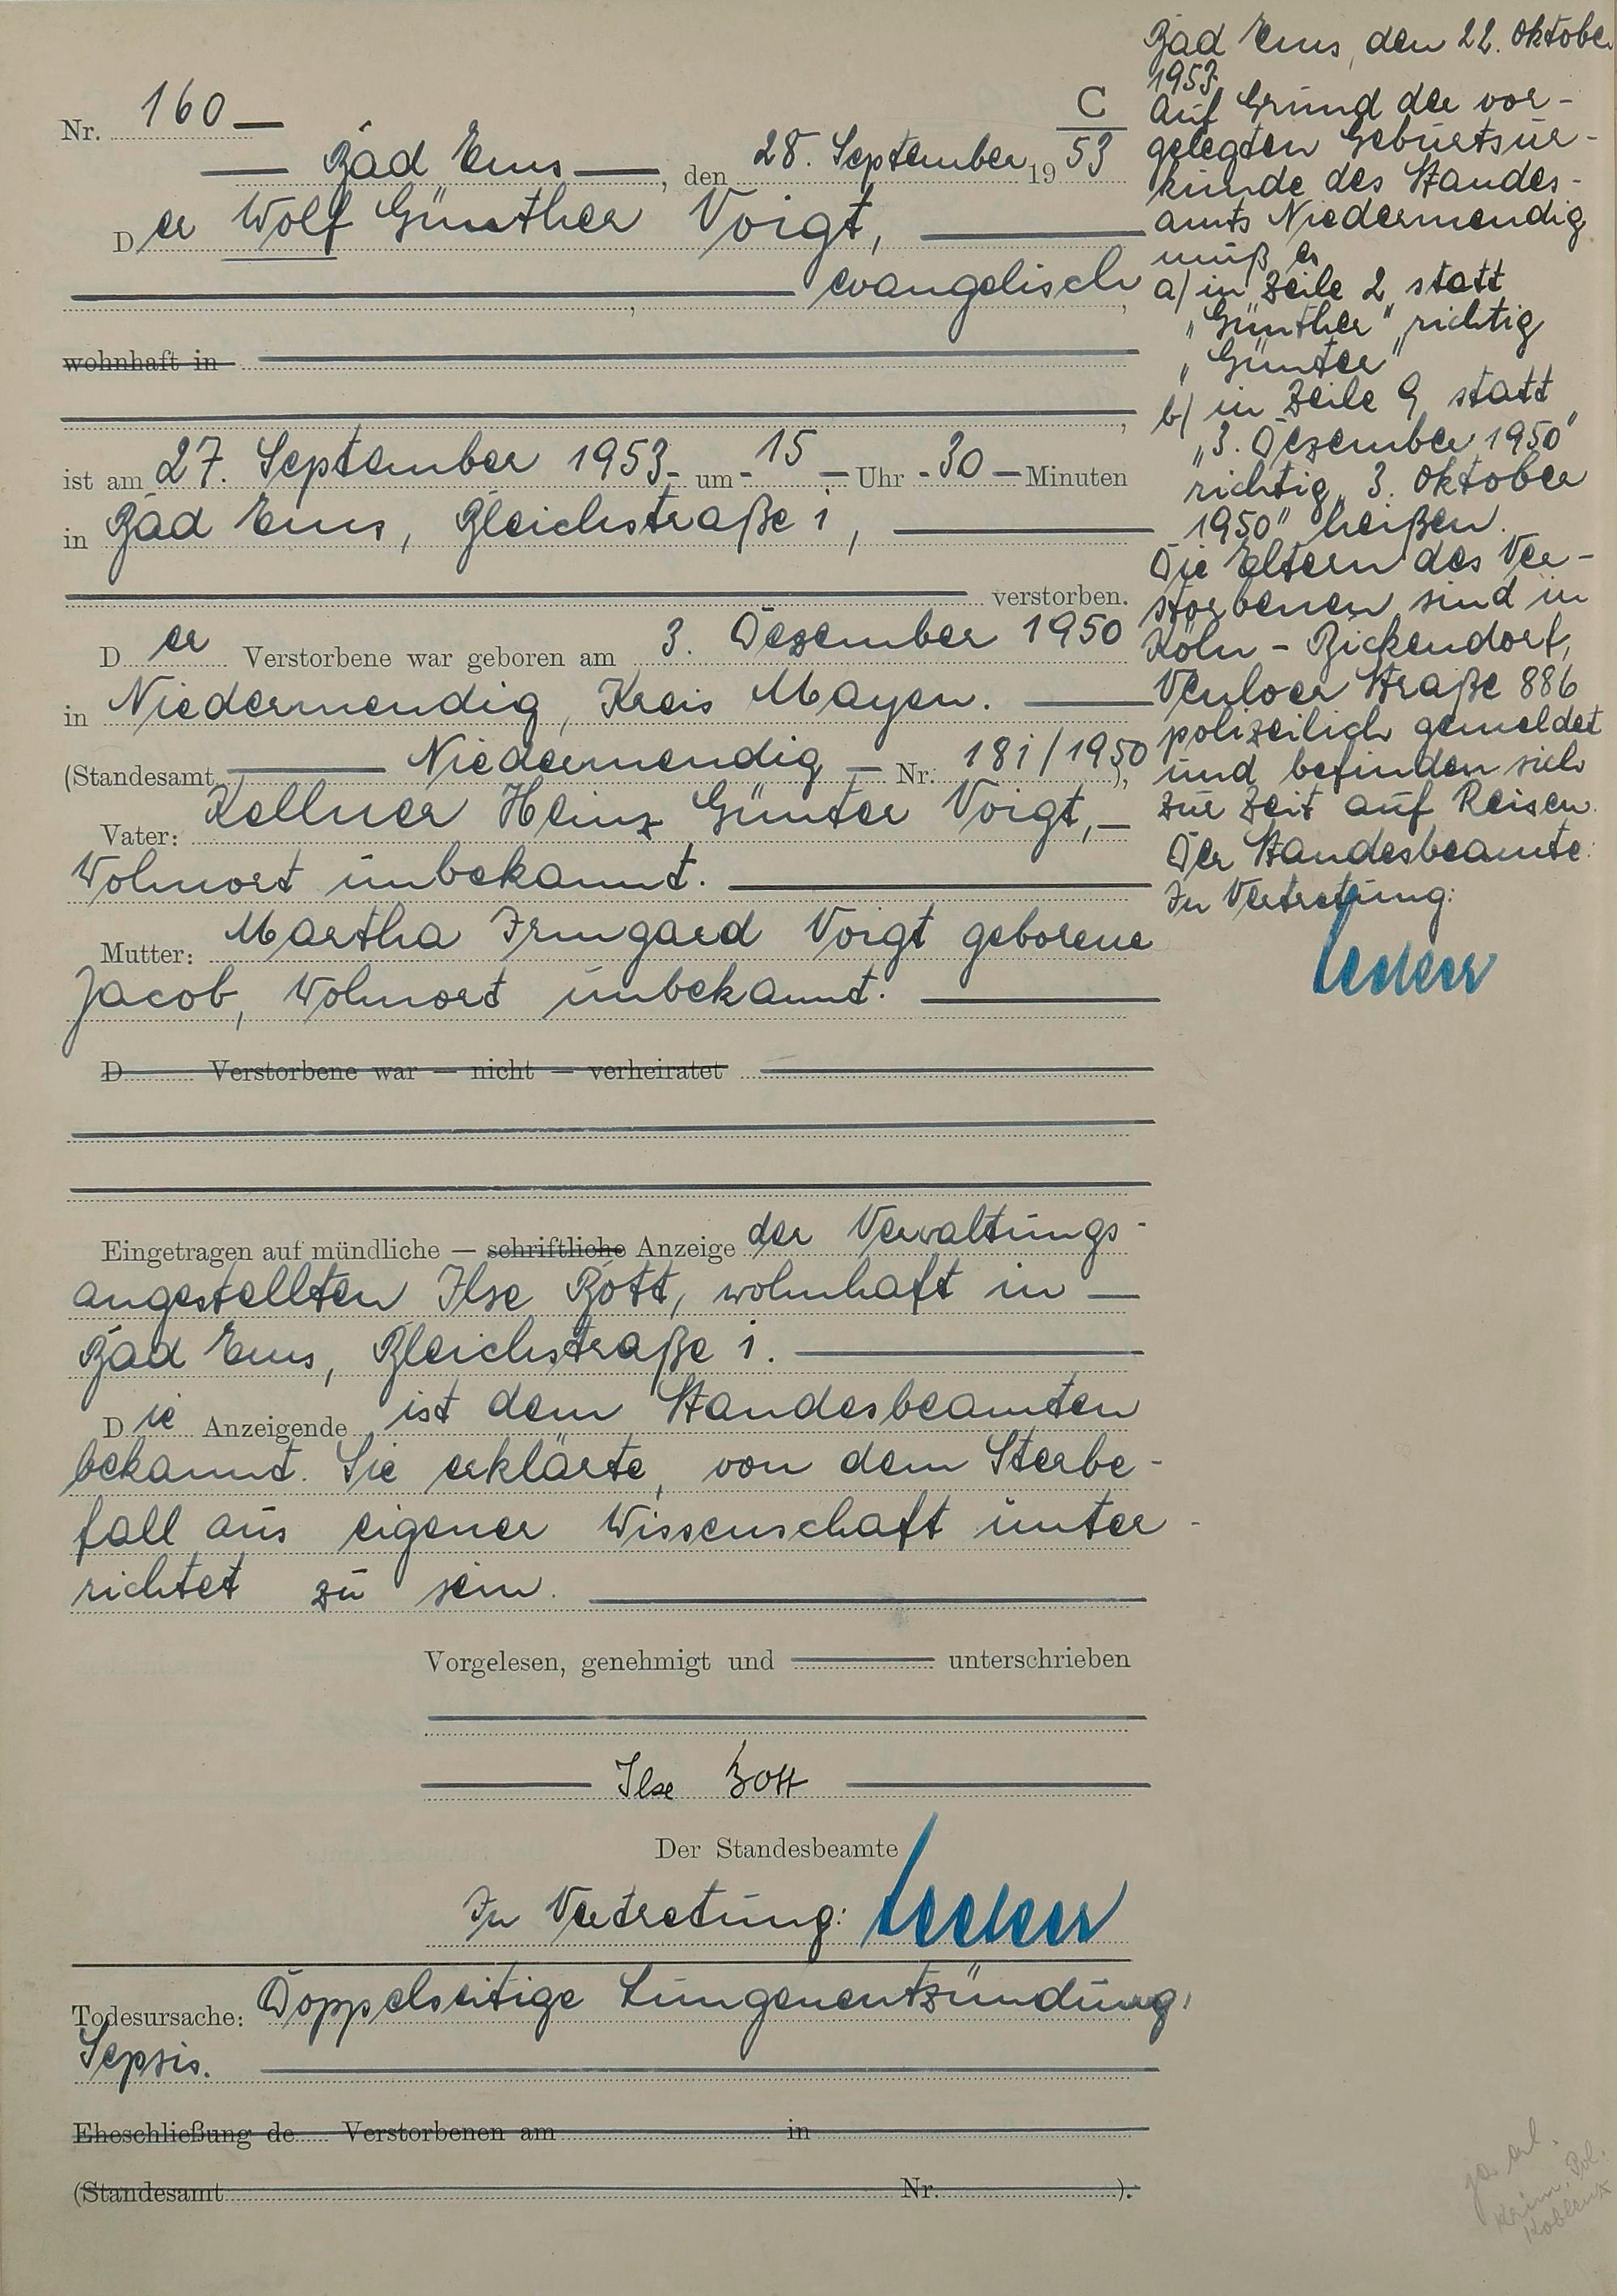 Nr. 160
C
Bad Ems, den 28. September 1953
Der Wolf Günther Voigt,
evangelisch,
wohnhaft in
ist am 27. September 1953 um 15 Uhr 30 Minuten
in Bad Ems, Bleichstraße 1,
verstorben.
Der Verstorbene war geboren am 3. Dezember 1950
in Niedermendig, Kreis Mayen.
(Standesamt Niedermendig Nr. 181/1950),
Vater: Kellner Heinz Günter Voigt,
Wohnort unbekannt.
Mutter: Martha Irmgard Voigt geborene
Jacob, Wohnort unbekannt.
D Verstorbene war — nicht — verheiratet
Eingetragen auf mündliche — schriftliche Anzeige der Verwaltungs-
angestellten Ilse Bott, wohnhaft in
Bad Ems, Bleichstraße 1.
Die Anzeigende ist dem Standesbeamten
bekannt. Sie erklärte, von dem Sterbe-
fall aus eigener Wissenschaft unter-
richtet zu sein.
Vorgelesen, genehmigt und unterschrieben
Ilse Bott
Der Standesbeamte
In Vertretung:
Todesursache: Doppelseitige Lungenentzündung,
Sepsis.
Eheschließung de Verstorbenen am in
(Standesamt Nr. ).
Bad Ems, den 22. Oktober
1953.
Auf Grund der vor-
gelegten Geburtsur-
kunde des Standes-
amts Niedermendig
muß es
a) in Zeile 2 statt
„Günther" richtig
„Günter"
b) in Zeile 9 statt
„3. Dezember 1950"
richtig „3. Oktober
1950" heißen.
Die Eltern des Ver-
storbenen sind in
Köln - Bickendorf,
Venloer Straße 886
polizeilich gemeldet
und befinden sich
zur Zeit auf Reisen.
Der Standesbeamte:
In Vertretung:
Krim. Pol.
Koblenz